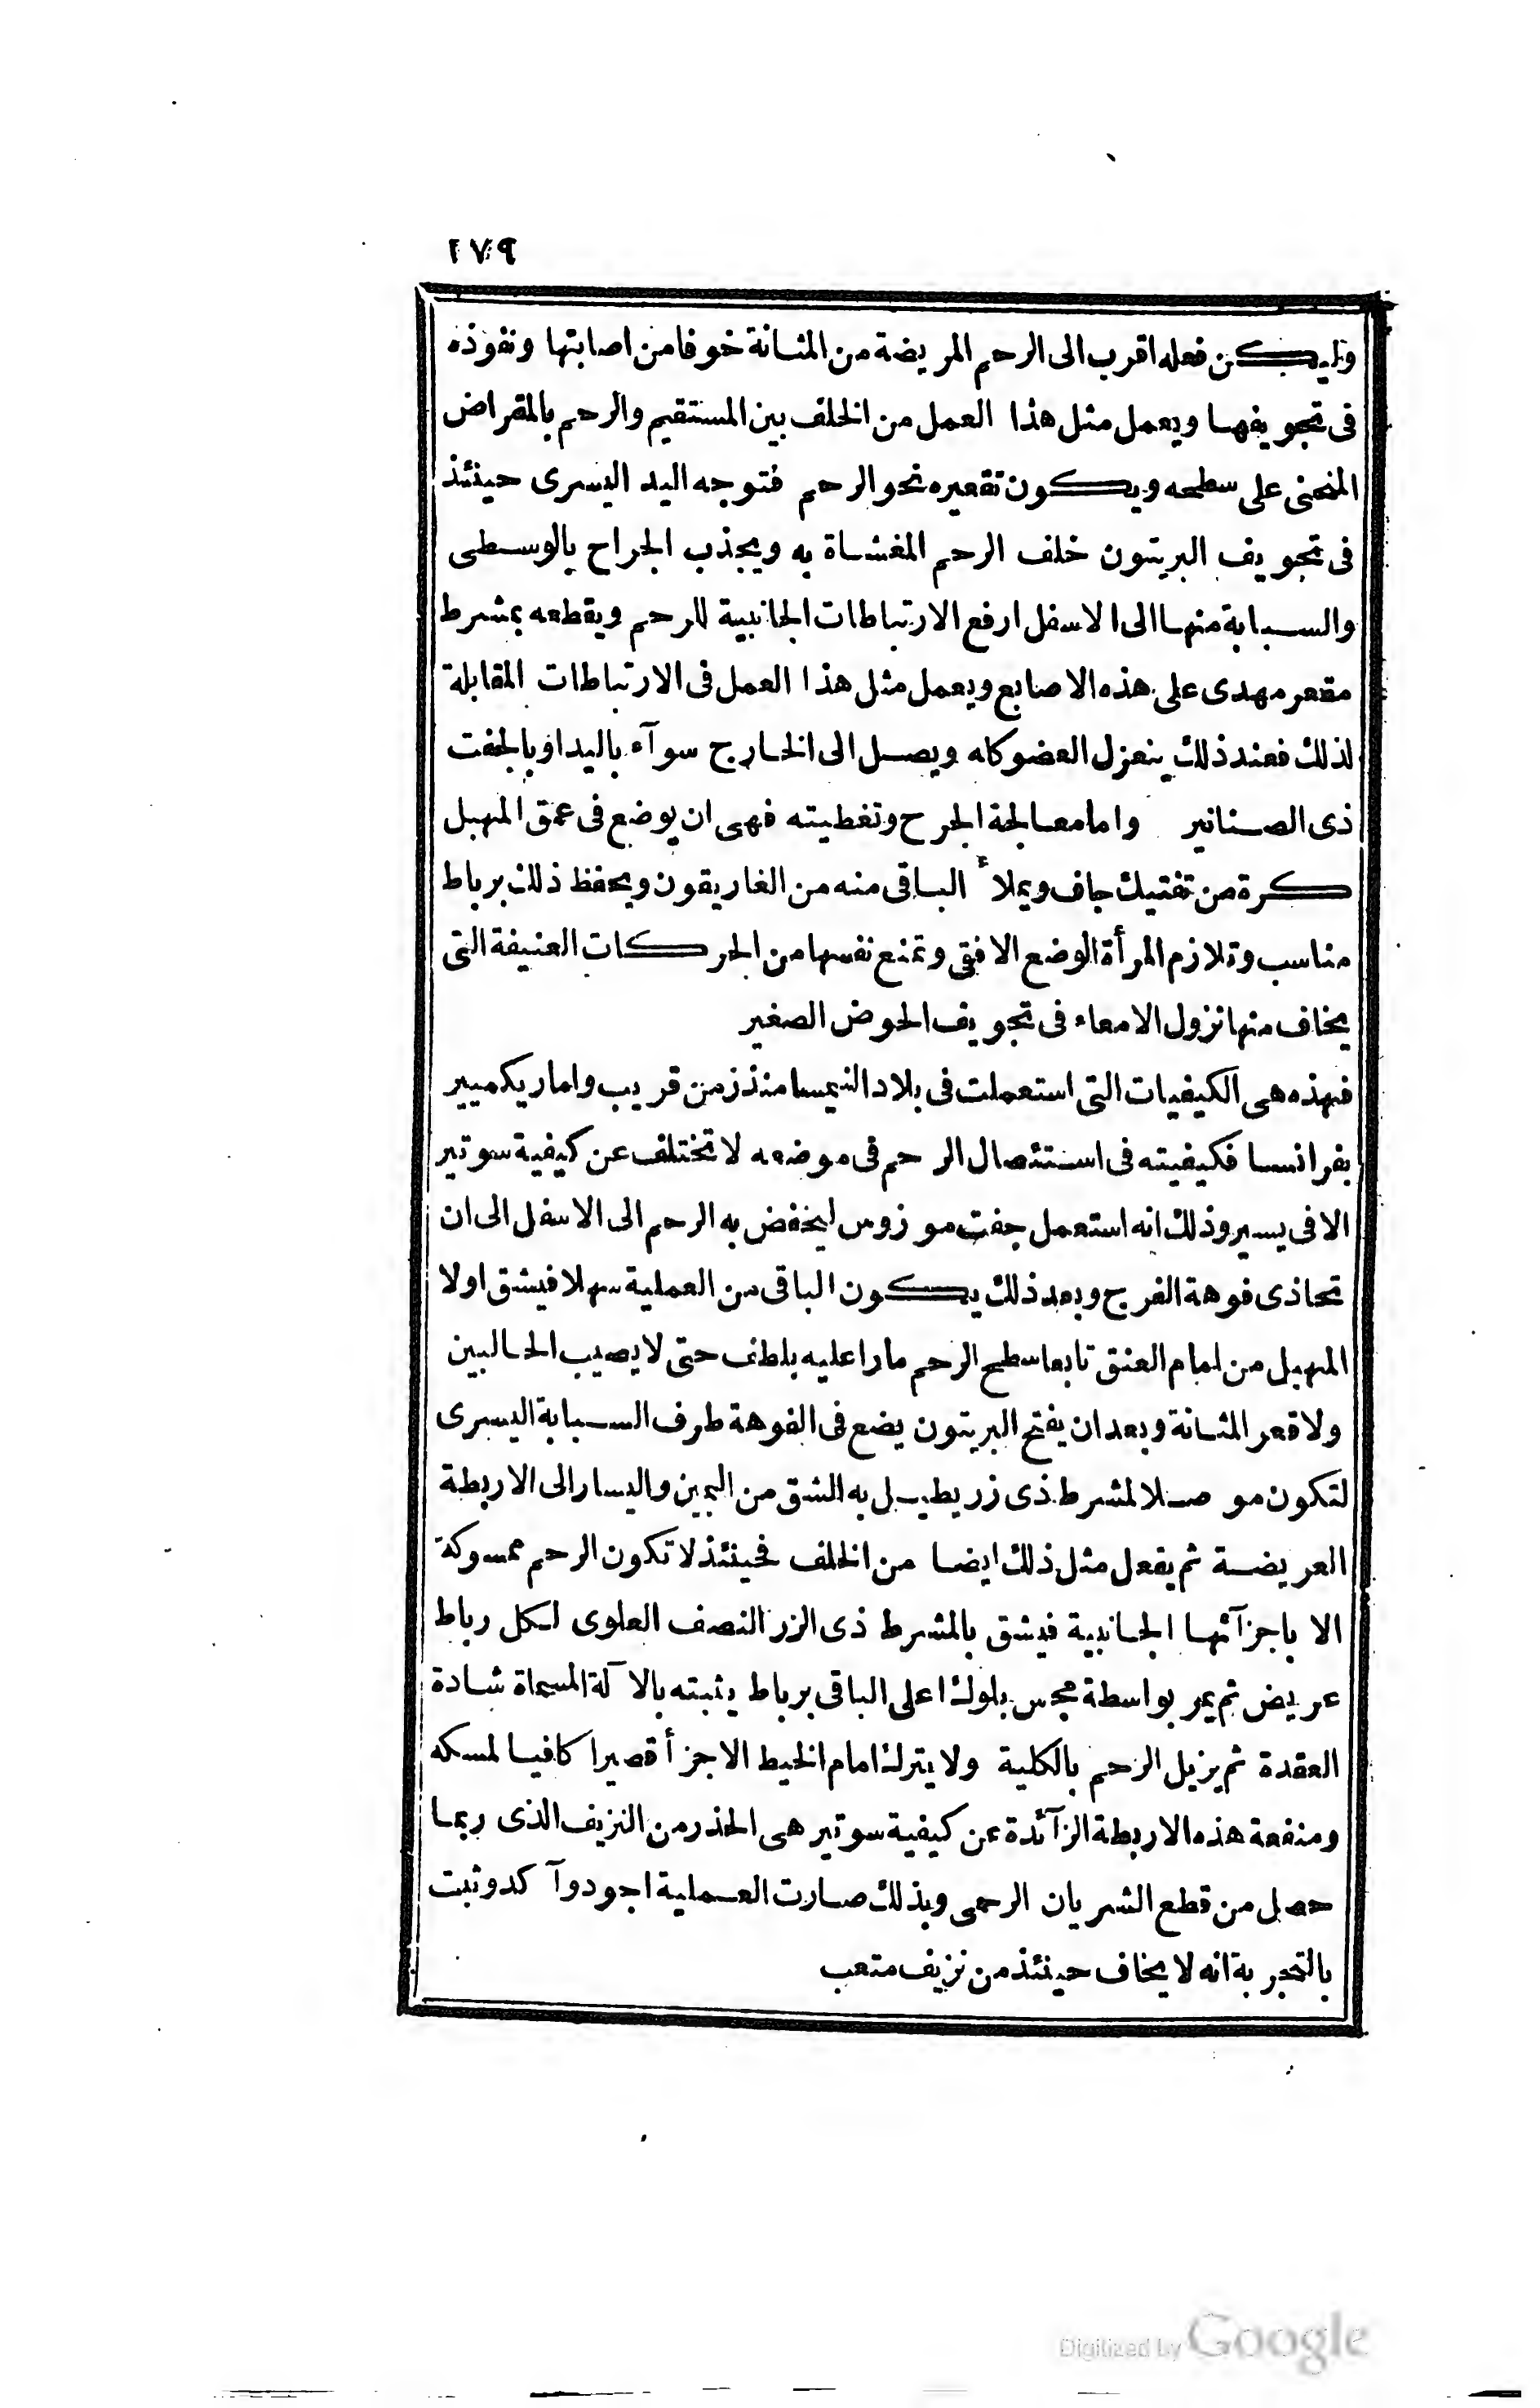 ١٧٩
وليكن فعله اقرب الى الرحم المريضة من المثانة خوفا من اصابتها ونفوذه
فى تجويفها ويعمل مثل هذا العمل من الخلف بين المستقيم والرحم بالمقراض
المنحنى على سطحه ويكون تقعيره نحو الرحم فتوجه اليد اليسرى حينئذ
فى تجويف البريتون خلف الرحم المغشاة به ويجذب الجراح بالوسطى
والسبابة منها الى الاسفل ارفع الارتباطات الجانبية للرحم ويقطعه بمشرط
مقعر مهدى على هذه الاصابع ويعمل مثل هذا العمل فى الارتباطات المقابلة
لذلك فعند ذلك ينعزل العضو كله ويصل الى الخارج سوآء باليد او بالجفت
ذى الصنانير واما معالجة الجرح وتغطيته فهى ان يوضع فى عمق المهبل
كرة من تفتيك جاف ويملأ الباقى منه من الغاريقون ويحفظ ذلك برباط
مناسب وتلازم المرأة الوضع الافقى وتمنع نفسها من الحركات العنيفة التى
يخاف منها نزول الامعاء فى تجويف الحوض الصغير
فهذه هى الكيفيات التى استعملت فى بلاد النيمسا منذ زمن قريب واما ريكميير
بفرانسا فكيفيته فى استئصال الرحم فى موضعه لا تختلف عن كيفية سوتير
الا فى يسير وذلك انه استعمل جفت موزوس ليخفض به الرحم الى الاسفل الى ان
تحاذى فوهة الفرج وبعد ذلك يكون الباقى من العملية سهلا فيشق اولا
المهبل من امام العنق تابعا سطح الرحم مارا عليه بلطف حتى لا يصيب الحالبين
ولا قعر المثانة وبعد ان يفتح البريتون يضع فى الفوهة طرف السبابة اليسرى
لتكون موصلا لمشرط ذى زر يطيل به الشق من اليمين واليسار الى الاربطة
العريضة ثم يفعل مثل ذلك ايضا من الخلف فحينئذ لا تكون الرحم ممسوكة
الا باجزآئها الجانبية فيشق بالمشرط ذى الزر النصف العلوى لكل رباط
عريض ثم يمر بواسطة مجس بلوك اعلى الباقى برباط يثبته بالآلة المسماة شادة
العقدة ثم يزيل الرحم بالكلية ولا يترك امام الخيط الا جزأ قصيرا كافيا لمسكه
ومنفعة هذه الاربطة الزآئدة عن كيفية سوتير هى الحذر من النزيف الذى ربما
حصل من قطع الشريان الرحمى وبذلك صارت العملية اجود وآكد وثبت
بالتجربة انه لا يخاف حينئذ من نزيف متعب
Digitized by Google